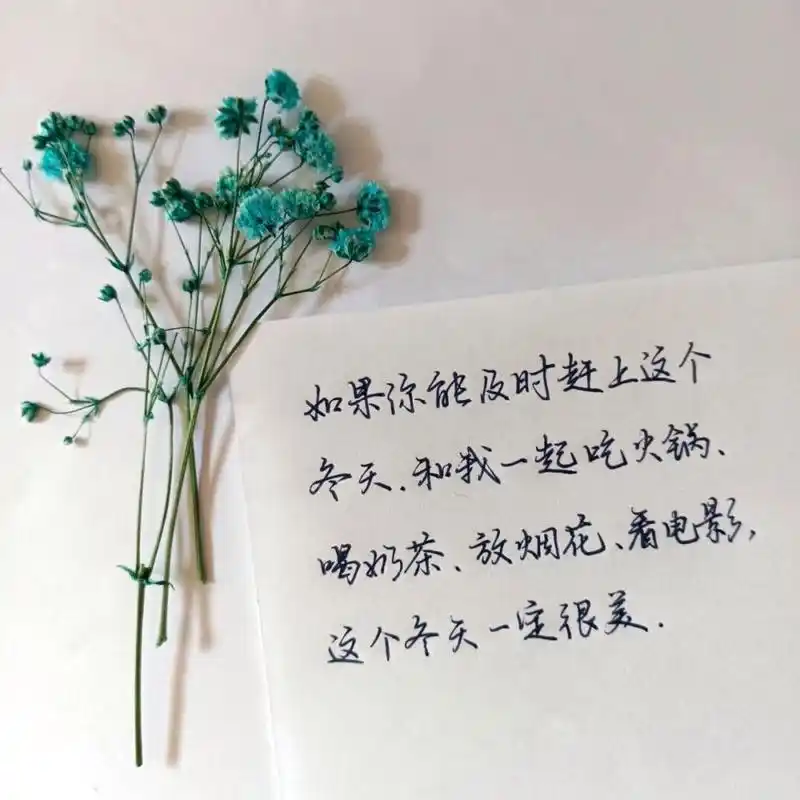 如果你能及时赶上这个
冬天.和我一起吃火锅、
喝奶茶、放烟花、看电影,
这个冬天一定很美.